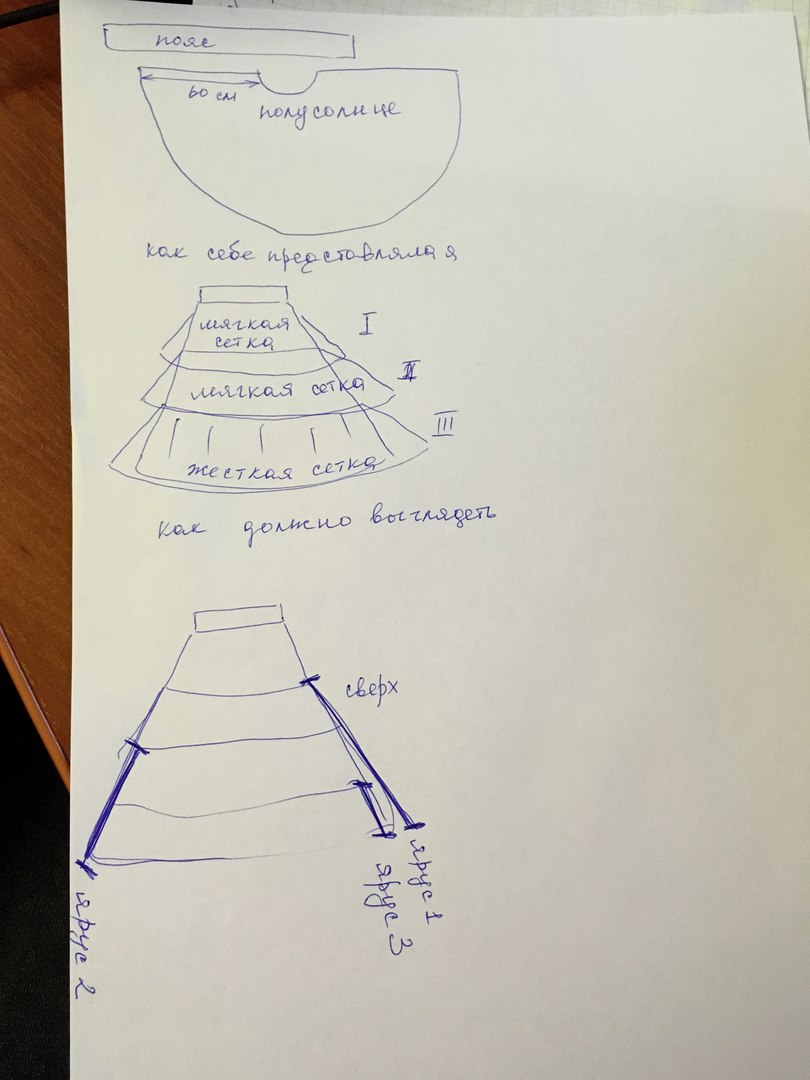 пояс
60 см
полусолнце
как себе представляла
мягкая
сетка
I
мягкая сетка
II
III
жесткая сетка
как должно выглядеть
сверх
ярус 1
ярус 3
ярус 2